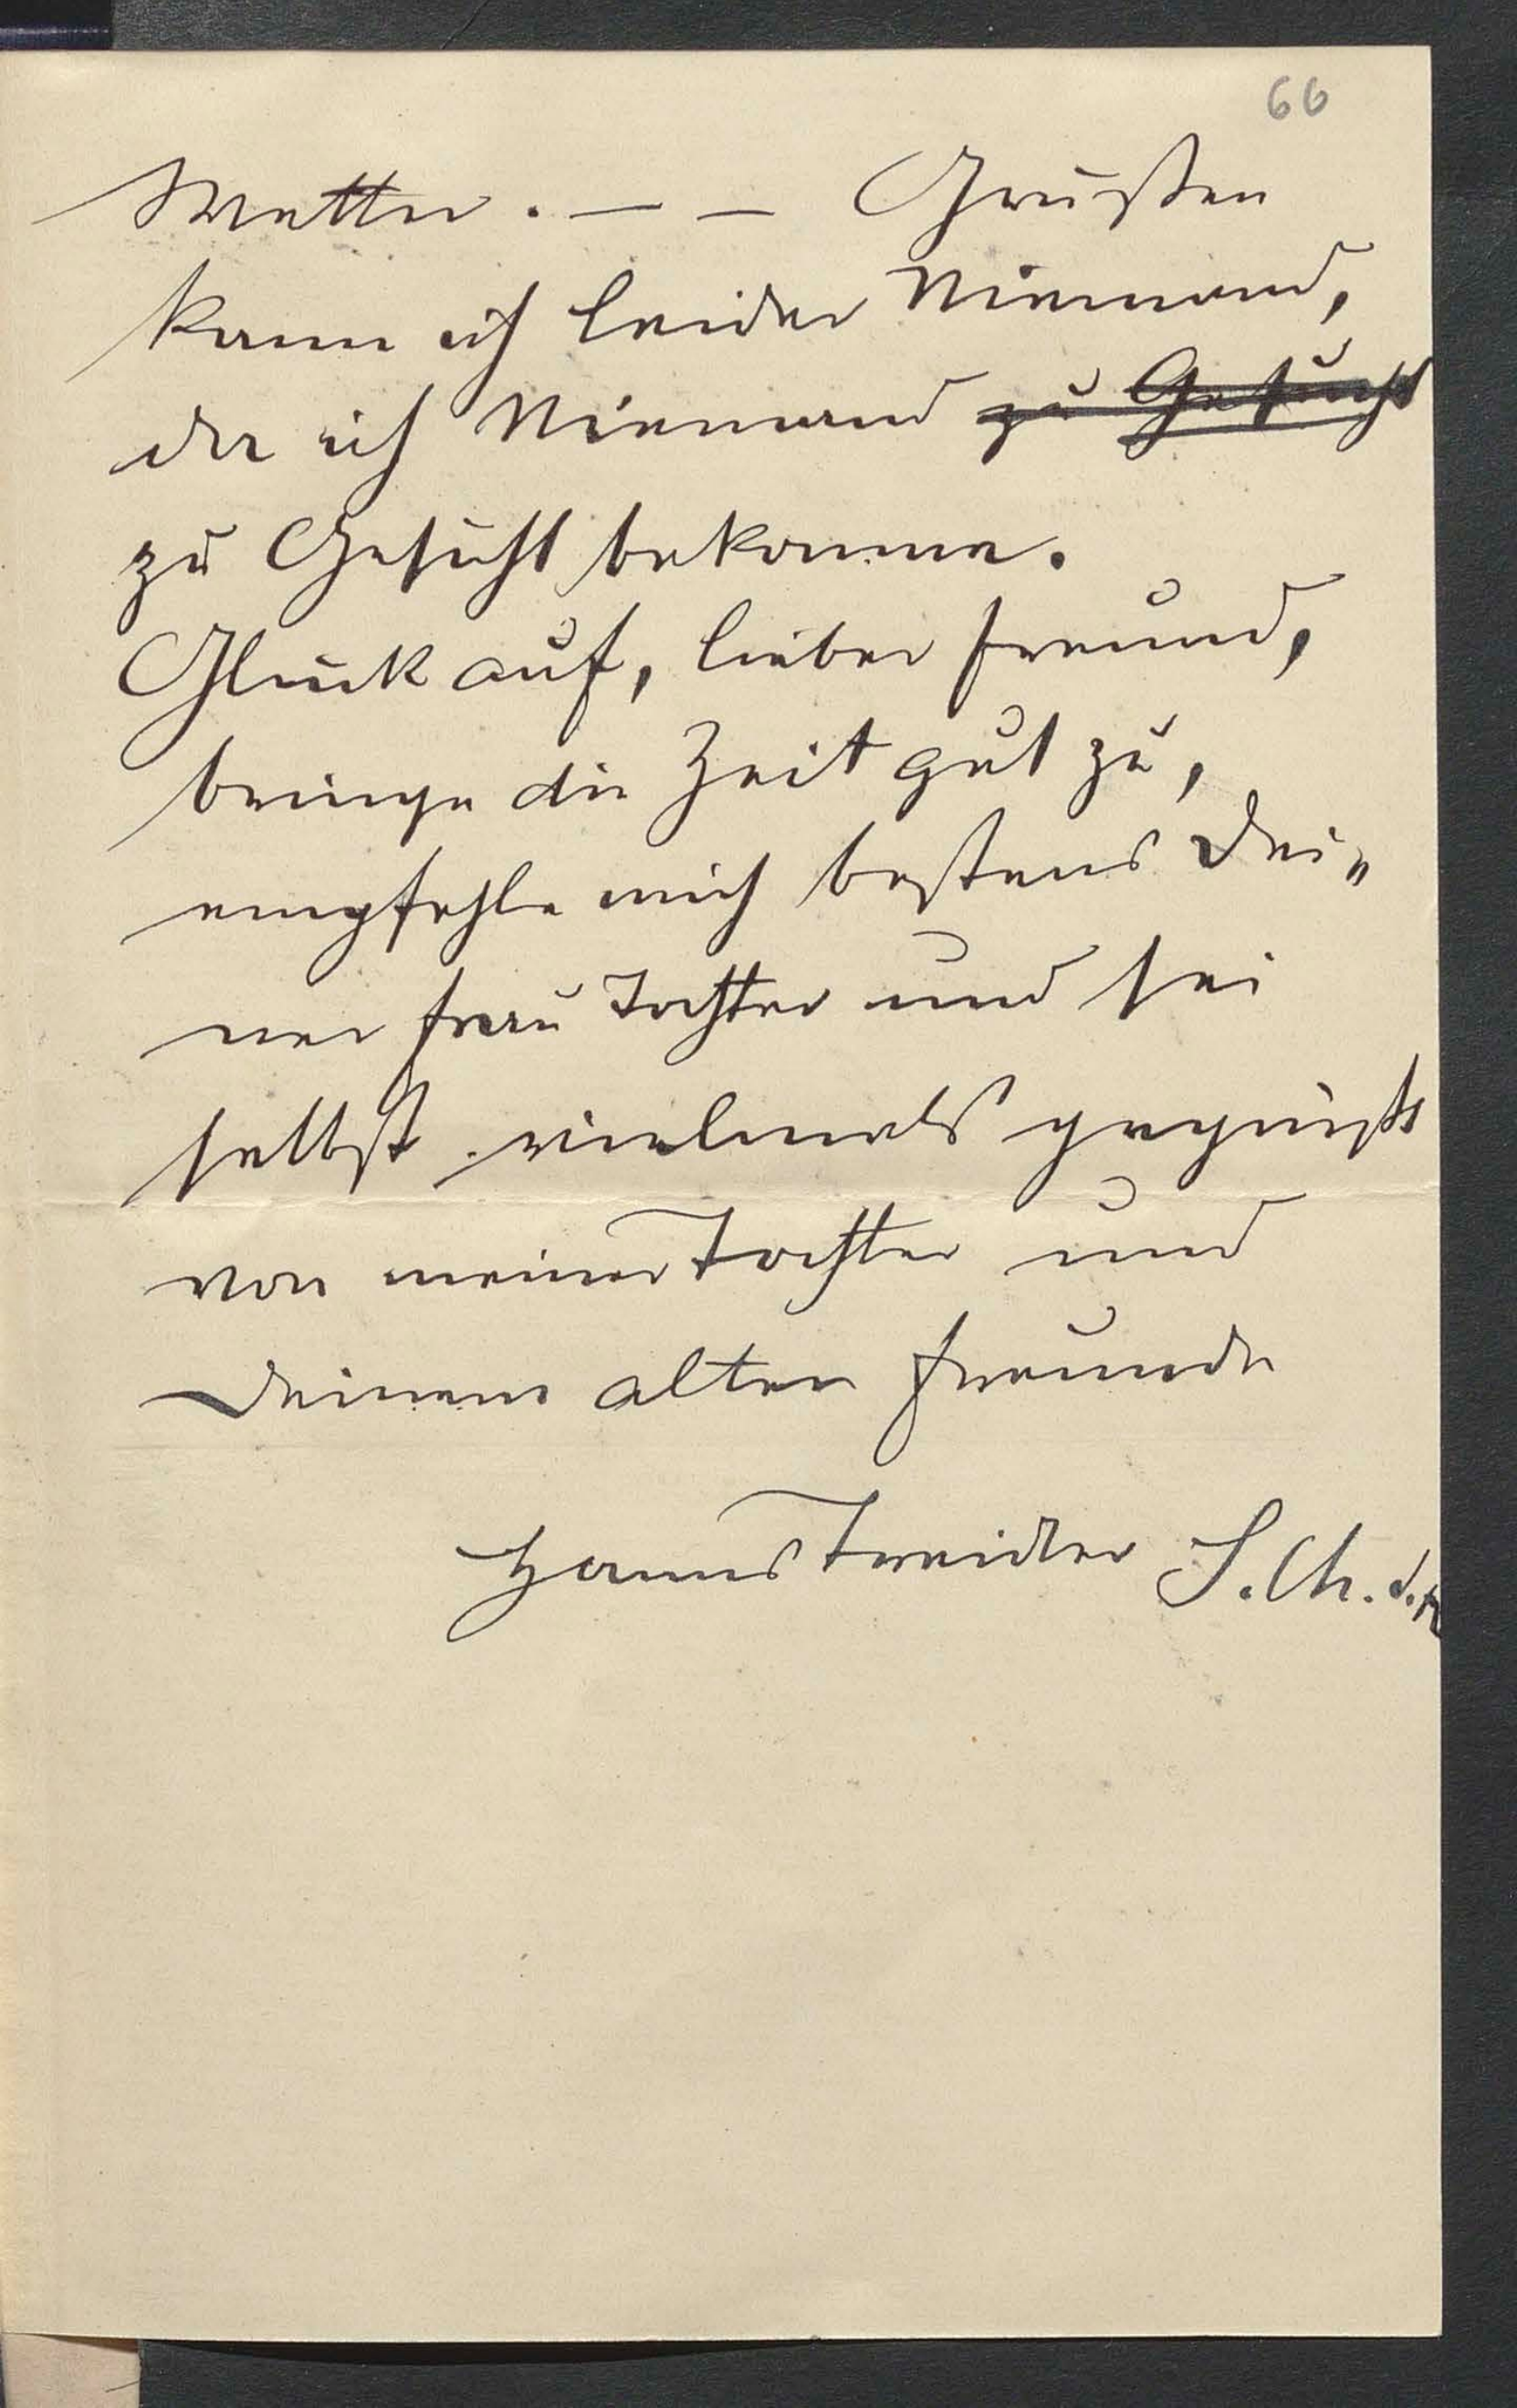 66
Wetter. — — Grüßen
kann ich leider Niemand,
da ich Niemand zu Gesicht
zu Gesicht bekomme.
Glück auf, lieber Freund,
bringe die Zeit gut zu,
empfehle mich bestens Dei„
ner Frau Tochter und sei
selbst vielmals gegrüßt
von meiner Tochter und
Deinem alten Freunde
Hanns Weidler S. Ch. d.